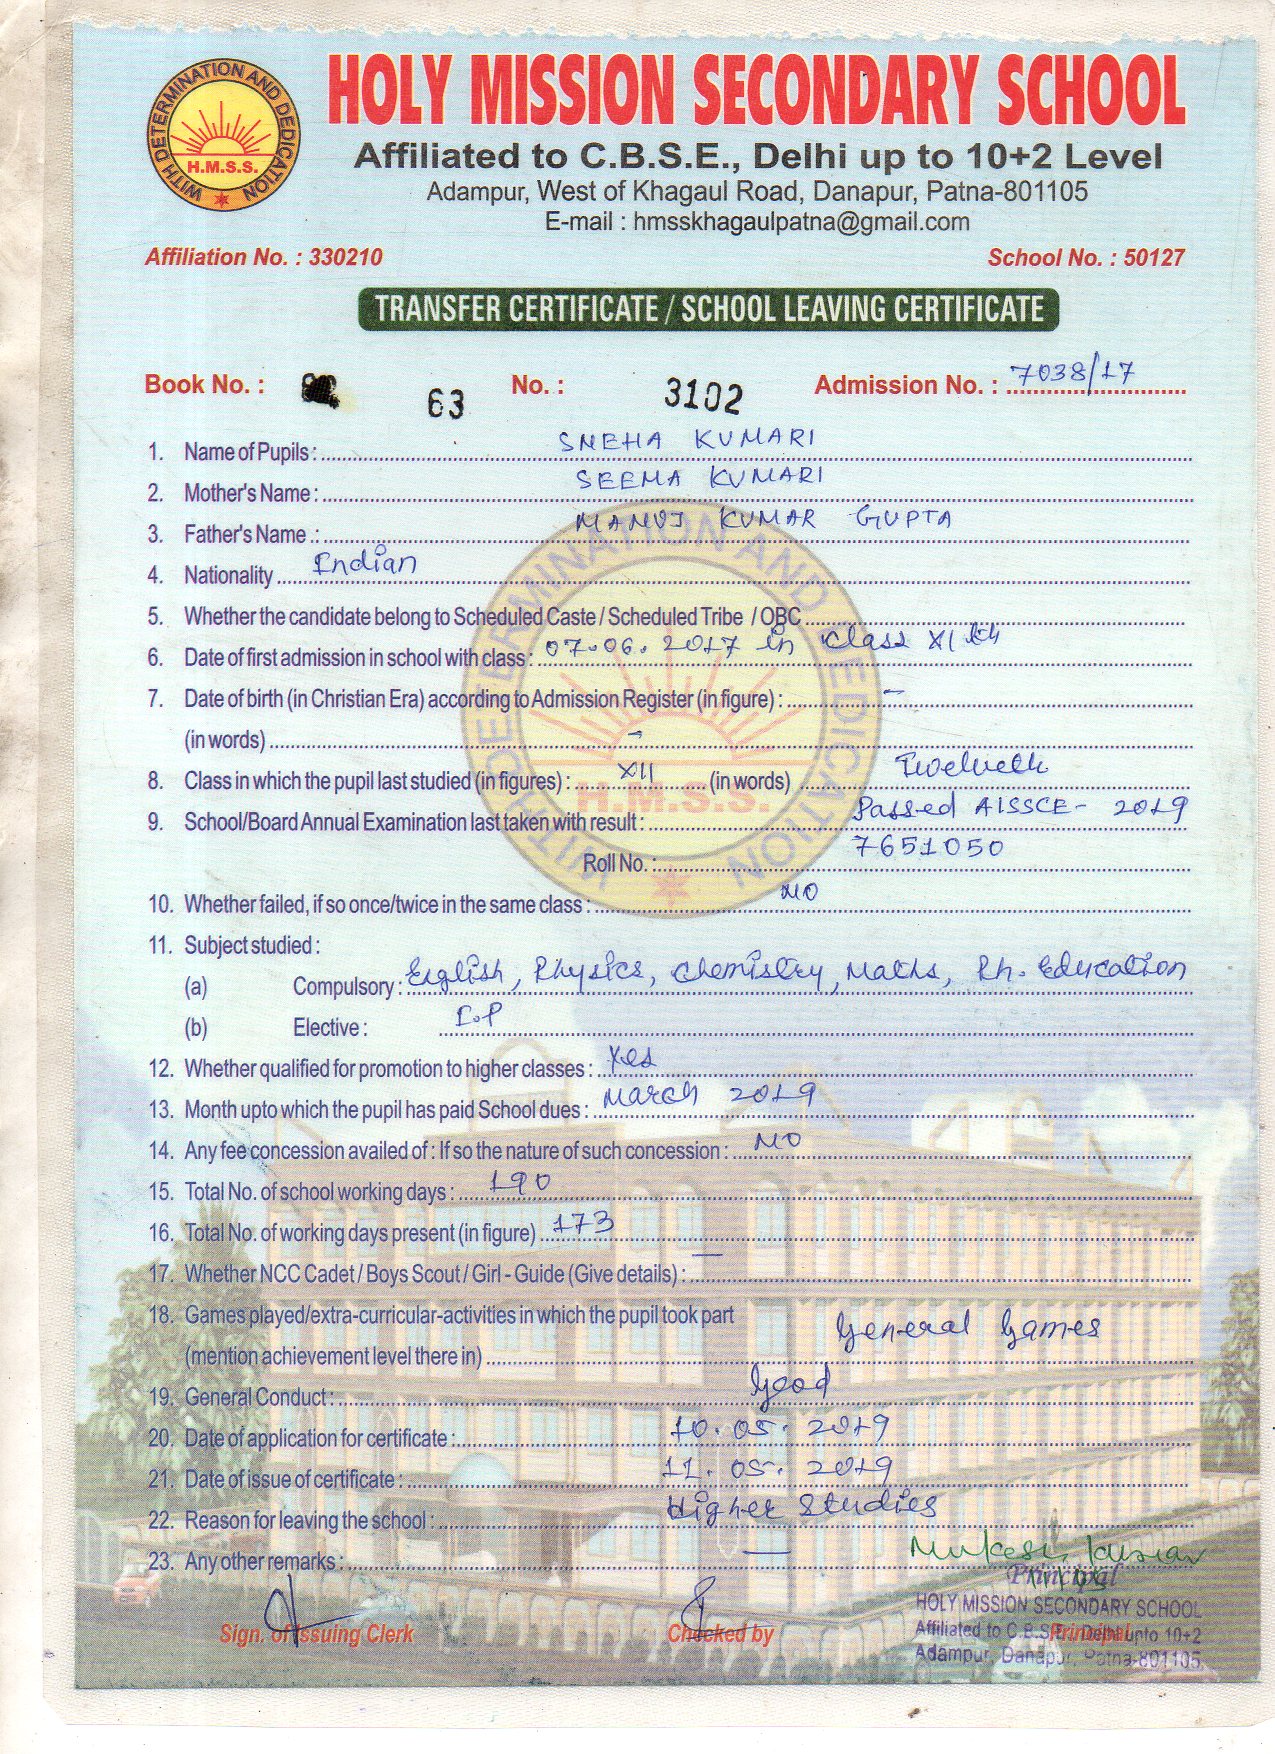 WITH DETERMINATION AND DEDICATION
H.M.S.S.
HOLY MISSION SECONDARY SCHOOL
Affiliated to C.B.S.E., Delhi up to 10+2 Level
Adampur, West of Khagaul Road, Danapur, Patna-801105
E-mail : hmsskhagaulpatna@gmail.com
Affiliation No. : 330210 School No. : 50127
TRANSFER CERTIFICATE / SCHOOL LEAVING CERTIFICATE
Book No. : 63 No. : 3102 Admission No. : 7038/17
1. Name of Pupils : SNEHA KUMARI
2. Mother's Name : SEEMA KUMARI
3. Father's Name .: MANOJ KUMAR GUPTA
4. Nationality Indian
5. Whether the candidate belong to Scheduled Caste / Scheduled Tribe / OBC
6. Date of first admission in school with class : 07.06.2017 in Class XIth
7. Date of birth (in Christian Era) according to Admission Register (in figure) : -
(in words) -
8. Class in which the pupil last studied (in figures) : XII (in words) Twelveth
9. School/Board Annual Examination last taken with result : Passed AISSCE - 2019
Roll No. : 7651050
10. Whether failed, if so once/twice in the same class : NO
11. Subject studied :
(a) Compulsory : English, Physics, Chemistry, Maths, Ph. Education
(b) Elective : I.P
12. Whether qualified for promotion to higher classes : Yes
13. Month upto which the pupil has paid School dues : March 2019
14. Any fee concession availed of : If so the nature of such concession : NO
15. Total No. of school working days : 190
16. Total No. of working days present (in figure) 173
17. Whether NCC Cadet / Boys Scout / Girl - Guide (Give details) : —
18. Games played/extra-curricular-activities in which the pupil took part
(mention achievement level there in) General Games
19. General Conduct : Good
20. Date of application for certificate : 10.05.2019
21. Date of issue of certificate : 11.05.2019
22. Reason for leaving the school : Higher Studies
23. Any other remarks : —
Mukesh Kumar
Principal
HOLY MISSION SECONDARY SCHOOL
Affiliated to C.B.S.E. Delhi upto 10+2
Adampur, Danapur, Patna-801105
Sign. of Issuing Clerk Checked by Principal